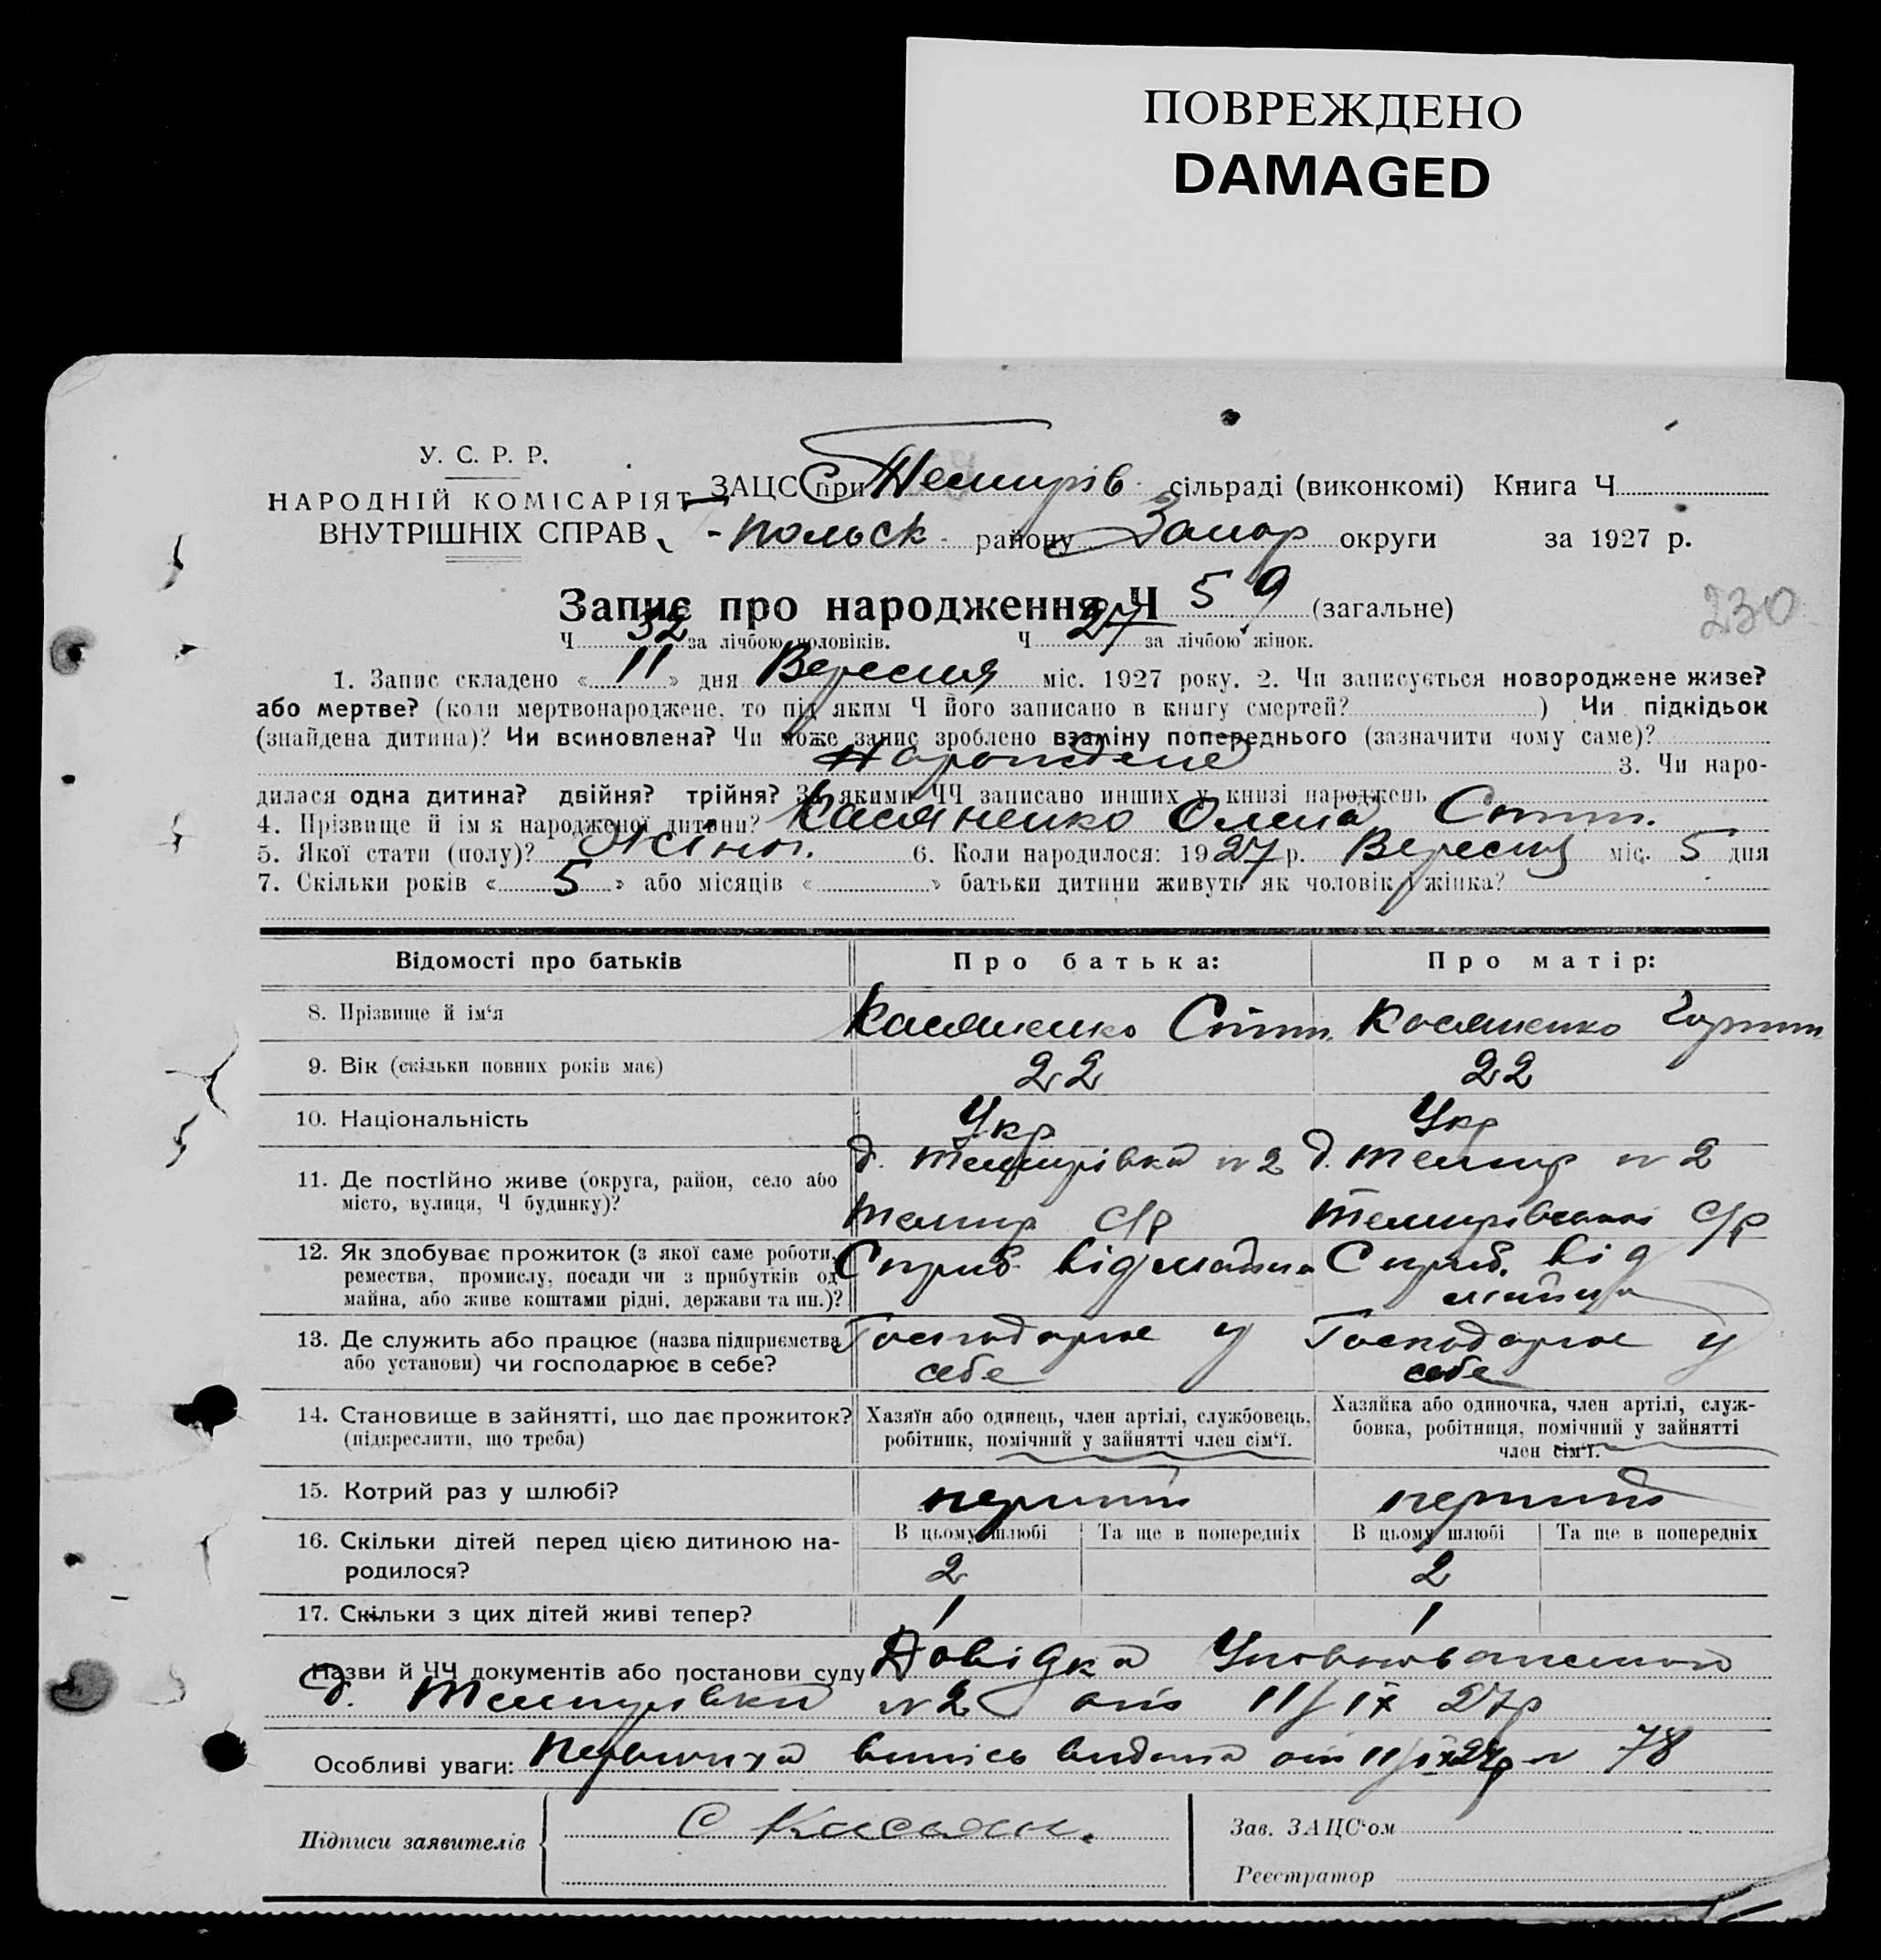 ПОВРЕЖДЕНО
DAMAGED
У. С. Р. Р.
НАРОДНІЙ КОМІСАРІЯТ
ВНУТРІШНІХ СПРАВ
ЗАЦС при Темирів сільраді (виконкомі) Книга Ч
-польск району Запор округи за 1927 р.
Запис про народження Ч 59 (загальне)
230
Ч 32 за лічбою чоловіків. Ч 27 за лічбою жінок.
1. Запис складено « 11 » дня Вересня міс. 1927 року. 2. Чи записується новороджене живе?
або мертве? (коли мертвонароджене, то під яким Ч його записано в книгу смертей? ) Чи підкідьок
(знайдена дитина)? Чи всиновлена? Чи може запис зроблено взаміну попереднього (зазначити чому саме)?
3. Чи наро-
дилася одна дитина? двійня? трійня? За якими ЧЧ записано инших у книзі народжень
4. Прізвище й імя народженої дитини? Касяненко Олена Степ.
5. Якої стати (полу)? Жіноч. 6. Коли народилося: 1927 р. Вересня міс. 5 дня
7. Скільки років « 5 » або місяців « » батьки дитини живуть як чоловік і жінка?
Відомості про батьків Про батька: Про матір:
8. Прізвище й ім'я Касяненко Степ. Касяненко
9. Вік (скільки повних років має) 22 22
10. Національність Укр Укр
11. Де постійно живе (округа, район, село або місто, вулиця, Ч будинку)? д. Темирівка №2 д. Темир №2
Темир с/р Темирівської с/р
12. Як здобуває прожиток (з якої саме роботи, ремества, промислу, посади чи з прибутків од майна, або живе коштами рідні, держави та ин.)? від майна від майна
13. Де служить або працює (назва підприємства або установи) чи господарює в себе? Господарює у себе Господарює у себе
14. Становище в зайнятті, що дає прожиток? (підкреслити, що треба) Хазяїн або одинець, член артілі, службовець, робітник, помічний у зайнятті член сім'ї. Хазяйка або одиночка, член артілі, служ-бовка, робітниця, помічний у зайнятті член сім'ї.
15. Котрий раз у шлюбі? перший перший
16. Скільки дітей перед цією дитиною на-родилося? В цьому шлюбі Та ще в попередніх В цьому шлюбі Та ще в попередніх
2 2
17. Скільки з цих дітей живі тепер? 1 1
Назви й ЧЧ документів або постанови суду Довідка Уповноваженого
д. Темирівки №2 від 11/IX 27р
Особливі уваги: Первична випись видана від 11/IX 27р № 78
Підписи заявителів С Касян.
Зав. ЗАЦС'ом
Реєстратор